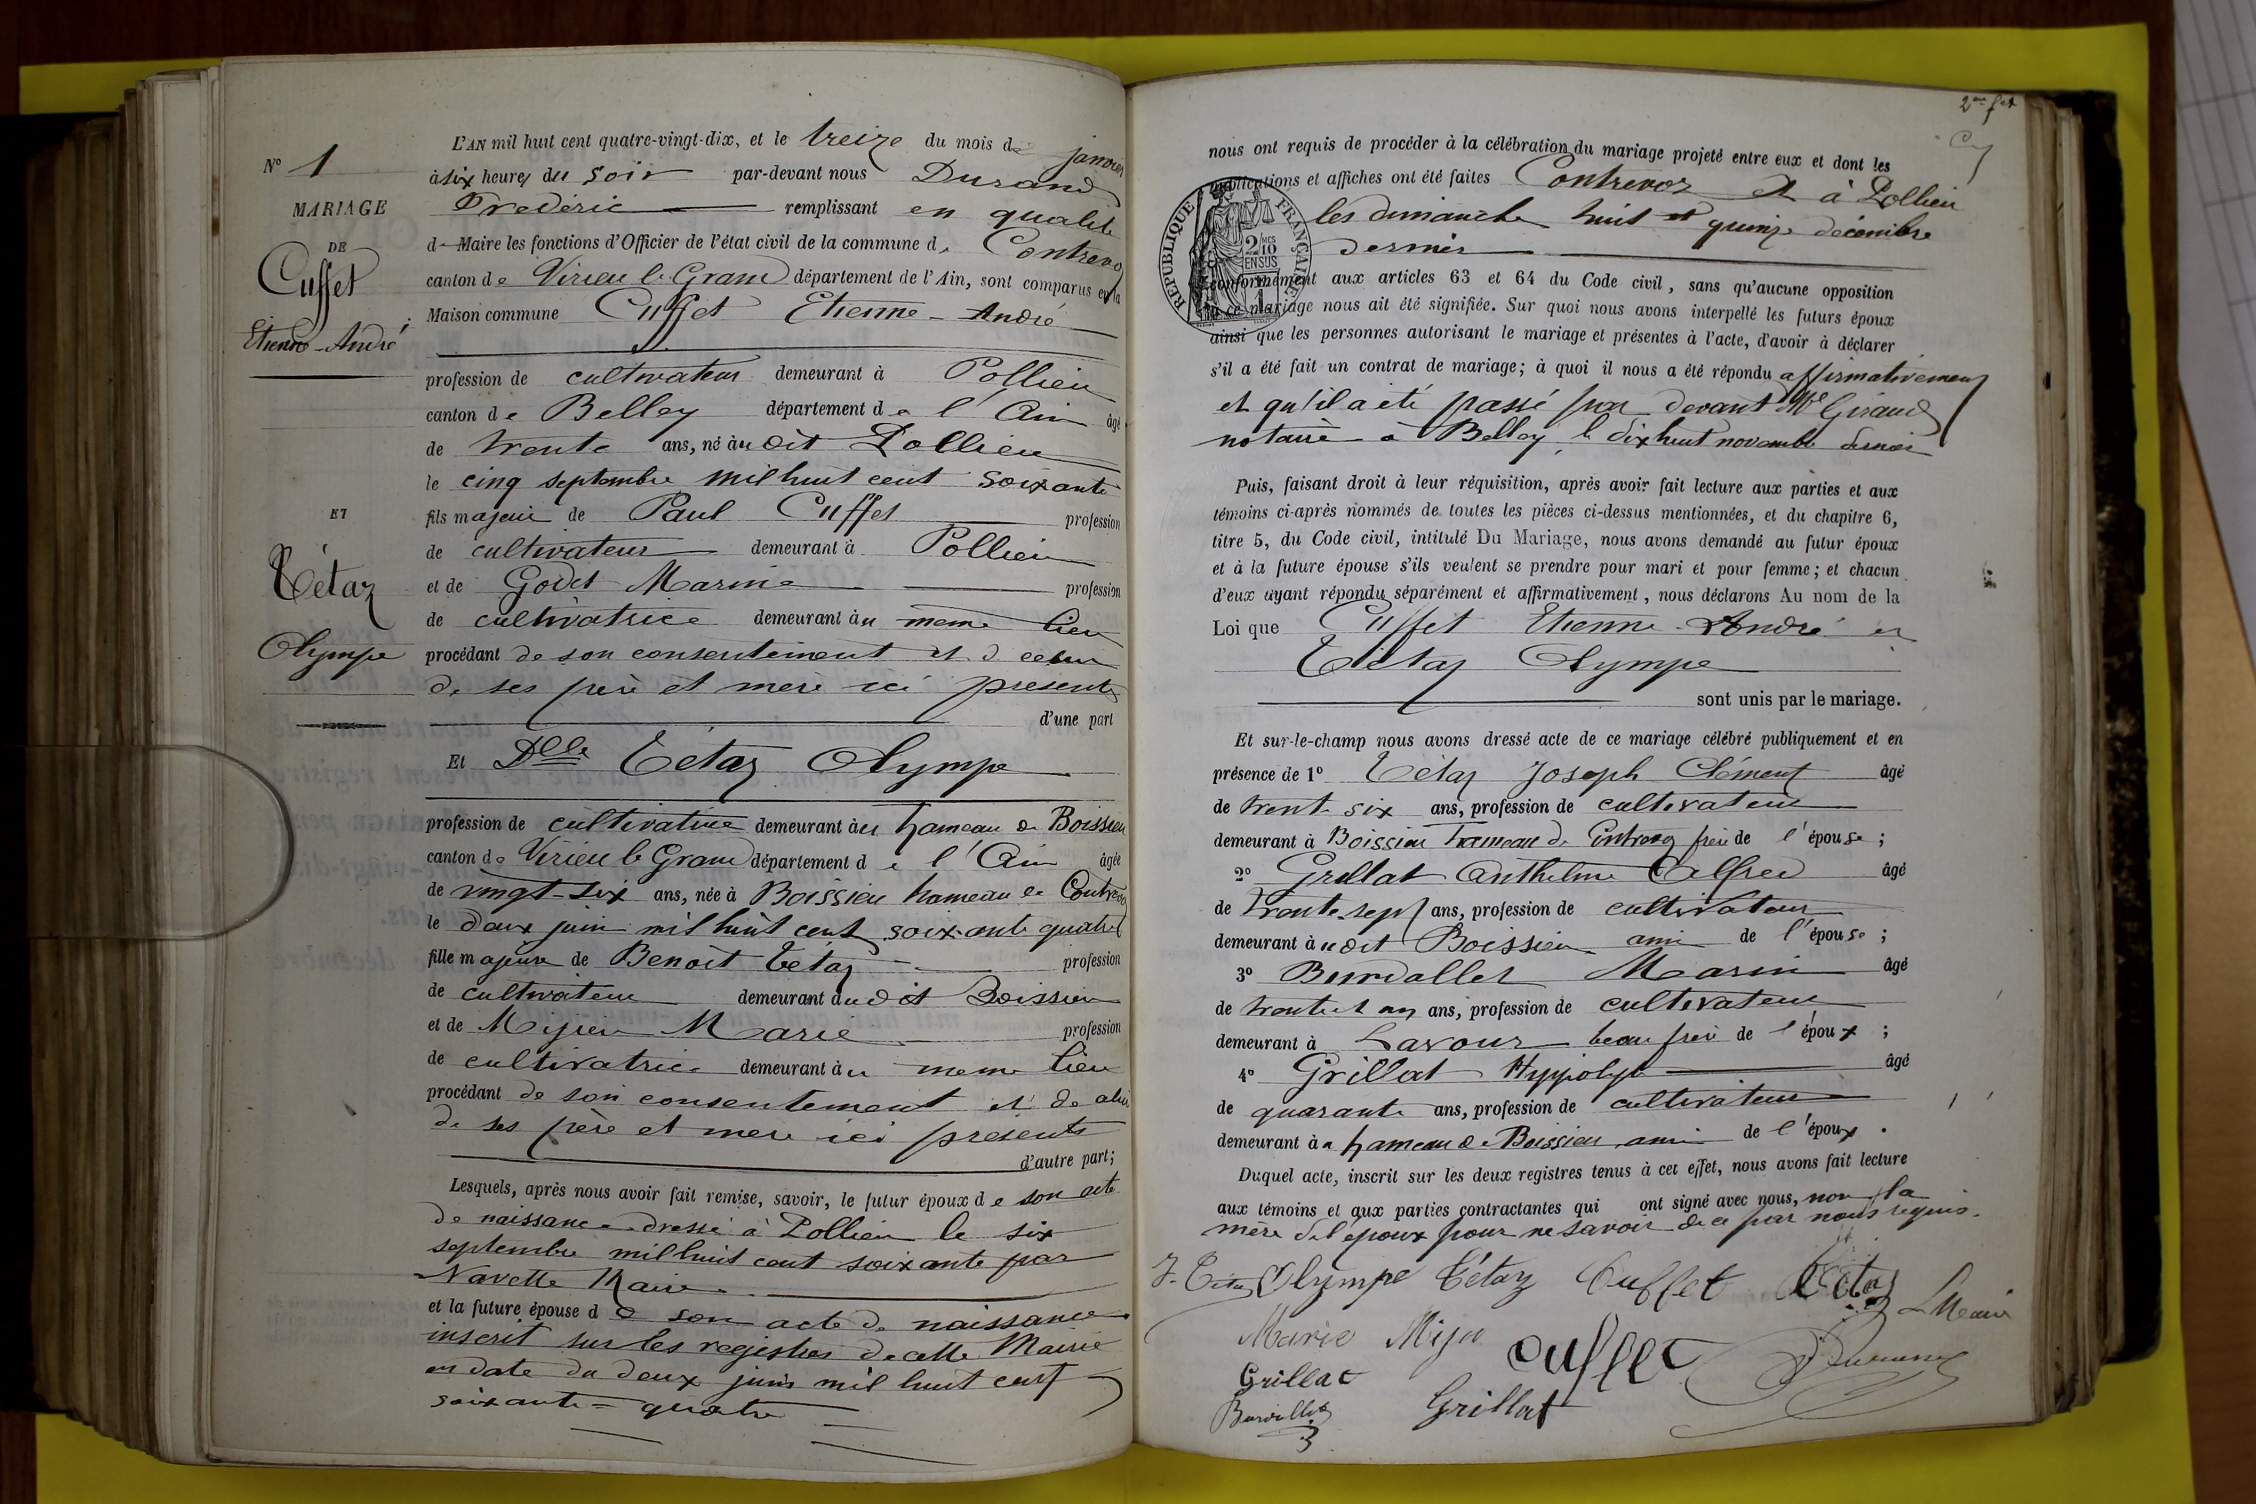 N° 1
MARIAGE
DE
Cuffet
Etienne-André
ET
Tétaz
Olympe
L'AN mil huit cent quatre-vingt-dix, et le treize du mois de janvier
à six heures du soir par-devant nous Durand
Frédéric remplissant en qualité
de Maire les fonctions d'Officier de l'état civil de la commune de Contrevoz
canton de Virieu le Grand département de l'Ain, sont comparus en la
Maison commune Cuffet Etienne-André
profession de cultivateur demeurant à Pollieu
canton de Belley département de l'Ain âgé
de trente ans, né au dit Pollieu
le cinq septembre mil huit cent soixante
fils majeur de Paul Cuffet profession
de cultivateur demeurant à Pollieu
et de Godet Marine profession
de cultivatrice demeurant au même lieu
procédant de son consentement et d celui
de ses père et mère ici présents
d'une part
Et Dlle Tétaz Olympe
profession de cultivatrice demeurant au hameau de Boissieu
canton de Virieu le Grand département de l'Ain âgée
de vingt-six ans, née à Boissieu hameau de Contrevoz
le deux juin mil huit cent soixante quatre
fille majeure de Benoit Tétaz profession
de cultivateur demeurant audit Boissieu
et de Mijieu Marie profession
de cultivatrice demeurant au même lieu
procédant de son consentement et de celui
de ses père et mère ici présents
d'autre part;
Lesquels, après nous avoir fait remise, savoir, le futur époux de son acte
de naissance dressé à Pollieu le six
septembre mil huit cent soixante par
Navette Maire
et la future épouse d de son acte de naissance
inscrit sur les registres de cette Mairie
en date du deux juin mil huit cent
soixante-quatre
2me ft
nous ont requis de procéder à la célébration du mariage projeté entre eux et dont les
publications et affiches ont été faites Contrevoz et à Pollieu
les dimanche huit et quinze décembre
dernier
RÉPUBLIQUE FRANÇAISE
2 MES
10
EN SUS
1
conformément aux articles 63 et 64 du Code civil, sans qu'aucune opposition
à ce mariage nous ait été signifiée. Sur quoi nous avons interpellé les futurs époux
ainsi que les personnes autorisant le mariage et présentes à l'acte, d'avoir à déclarer
s'il a été fait un contrat de mariage; à quoi il nous a été répondu affirmativement
et qu'il a été passé par devant Me Giraud
notaire à Belley, le dix huit novembre dernier
Puis, faisant droit à leur réquisition, après avoir fait lecture aux parties et aux
témoins ci-après nommés de toutes les pièces ci-dessus mentionnées, et du chapitre 6,
titre 5, du Code civil, intitulé Du Mariage, nous avons demandé au futur époux
et à la future épouse s'ils veulent se prendre pour mari et pour femme; et chacun
d'eux ayant répondu séparément et affirmativement, nous déclarons Au nom de la
Loi que Cuffet Etienne-André et
Tétaz Olympe
sont unis par le mariage.
Et sur-le-champ nous avons dressé acte de ce mariage célébré publiquement et en
présence de 1° Tétaz Joseph Clément âgé
de trente six ans, profession de cultivateur
demeurant à Boissieu hameau de Contrevoz frère de l'épouse;
2° Grillat Anthelme Alfred âgé
de trente-sept ans, profession de cultivateur
demeurant audit Boissieu ami de l'épouse;
3° Burdallet Marin âgé
de trente et un ans, profession de cultivateur
demeurant à Lavour beau frère de l'époux;
4° Grillat Hyppolyte âgé
de quarante ans, profession de cultivateur
demeurant à u hameau de Boissieu ami de l'époux.
Duquel acte, inscrit sur les deux registres tenus à cet effet, nous avons fait lecture
aux témoins et aux parties contractantes qui ont signé avec nous, non la
mère de l'époux pour ne savoir de ce par nous requis.
J. Tétaz Olympe Tétaz Cuffet Tétaz
Le Maire
Marie Mijieu Cuffet Durand
Grillat
Burdallet Grillat